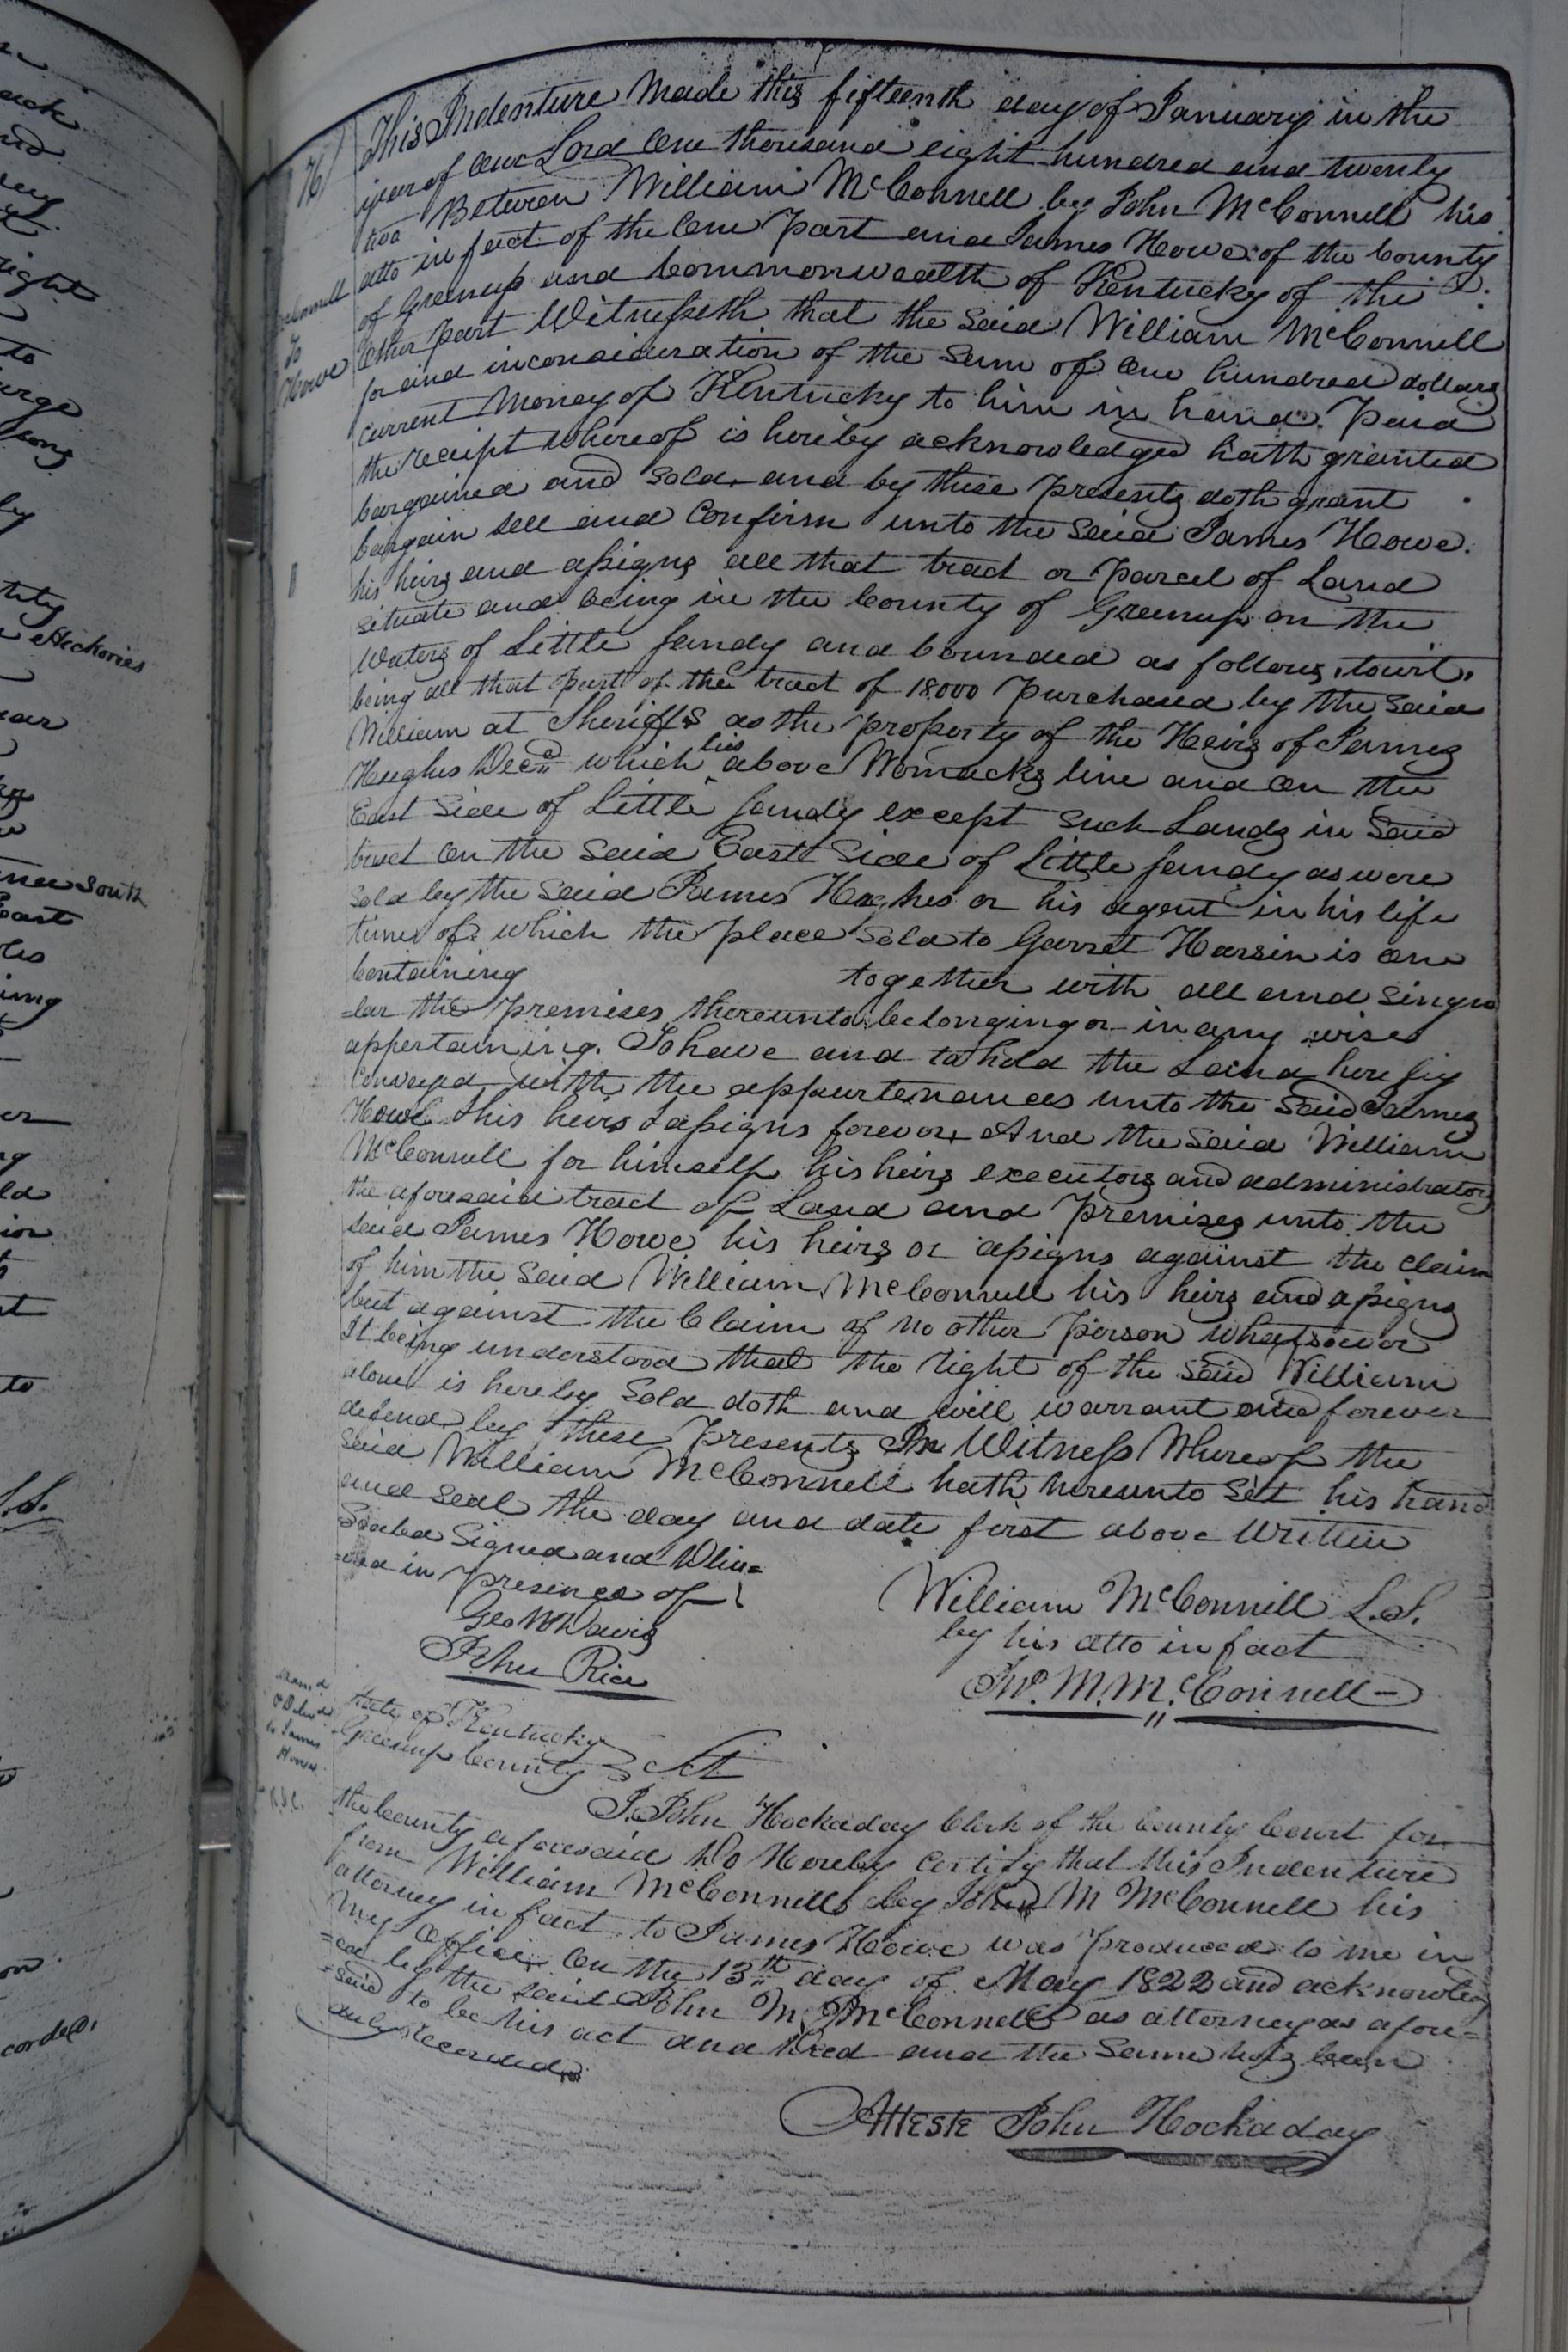 This Indenture Made this fifteenth day of January in the
year of Our Lord One thousand eight hundred and twenty
two Between William McConnell by John McConnell his
atto in fact of the One Part and James Howe of the County
of Greenup and Commonwealth of Kentucky of the
Other part Witnesseth that the Said William McConnell
for and in consideration of the Sum of One hundred dollars
Current Money of Kentucky to him in hand Paid
the receipt whereof is hereby acknowledged hath granted
bargained and Sold and by these Presents doth grant
bargain sell and Confirm unto the Said James Howe
his heirs and assigns all that tract or Parcel of Land
situate and being in the County of Greenup on the
Waters of Little Sandy and bounded as follows, towit,
being all that Part of the tract of 18000 Purchased by the Said
William at Sheriffs as the property of the Heirs of James
Hughs Decd which lies above Womacks line and on the
East Side of Little Sandy except such Lands in Said
tract On the Said East Side of Little Sandy as were
Sold by the Said James Hughes or his agent in his life
time of which the place Sold to Garret Harsin is one
Containing together with all and singu
=lar the premises thereunto belonging or in any wise
appertaining. To have and to hold the Land hereby
Conveyed with the appurtenances unto the Said James
Howe his heirs & assigns forever. And the Said William
McConnell for himself his heirs executors and administrators
the aforesaid tract of Land and Premises unto the
said James Howe his heirs or assigns against the claim
of him the Said William McConnell his heirs and assigns
but against the Claim of no other Person whatsoever
It being understood that the right of the Said William
alone is hereby Sold doth and will warrant and forever
defend by these Presents In Witness Whereof the
Said William McConnell hath hereunto Set his hand
and seal the day and date first above Written
Sealed Signed and Deliv=
=ered in Presence of
Geo W Davis
John Rice
William McConnell L.S.
by his atto in fact
Jno. M. McConnell
State of Kentucky
Greenup County Sct
I John Hockaday Clerk of the County Court for
the County aforesaid Do Hereby Certify that this Indenture
from William McConnell by John M McConnell his
attorney in fact to James Howe was Produced to me in
My Office On the 13th day of May 1822 and acknowledg
=ed by the said John M. McConnell as attorney as afore=
=said to be his act and Deed and the Same has been
duly Recorded
Atteste John Hockaday
McConnell
To
Howe